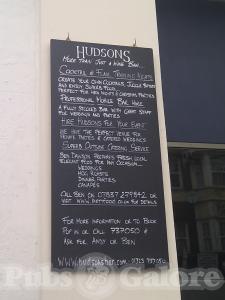 HUDSONS
MORE THAN JUST A WINE BAR....
COCKTAIL & FLAIR TRAINING NIGHTS
CREATE YOUR OWN COCKTAILS, JUGGLE BOTTLES
AND ENJOY SUPERB FOOD...
PERFECT FOR HEN NIGHTS & CHRISTMAS PARTIES
PROFESSIONAL MOBILE BAR HIRE
A FULLY STOCKED BAR WITH GREAT STAFF
FOR WEDDINGS AND PARTIES
HIRE HUDSONS FOR YOUR EVENT
WE HAVE THE PERFECT VENUE FOR
PRIVATE PARTIES & CATERED WEDDINGS
SUPERB OUTSIDE CATERING SERVICE
BEN DAWSON PREPARES FRESH LOCAL
RELEVANT FOOD FOR ANY OCCASION...
WEDDINGS
HOG ROASTS
DINNER PARTIES
CANAPÉS
CALL BEN ON
VISIT FOR DETAILS
FOR MORE INFORMATION OR TO BOOK
POP IN OR CALL 737050 &
ASK FOR ANDY OR BEN
Pubs Galore